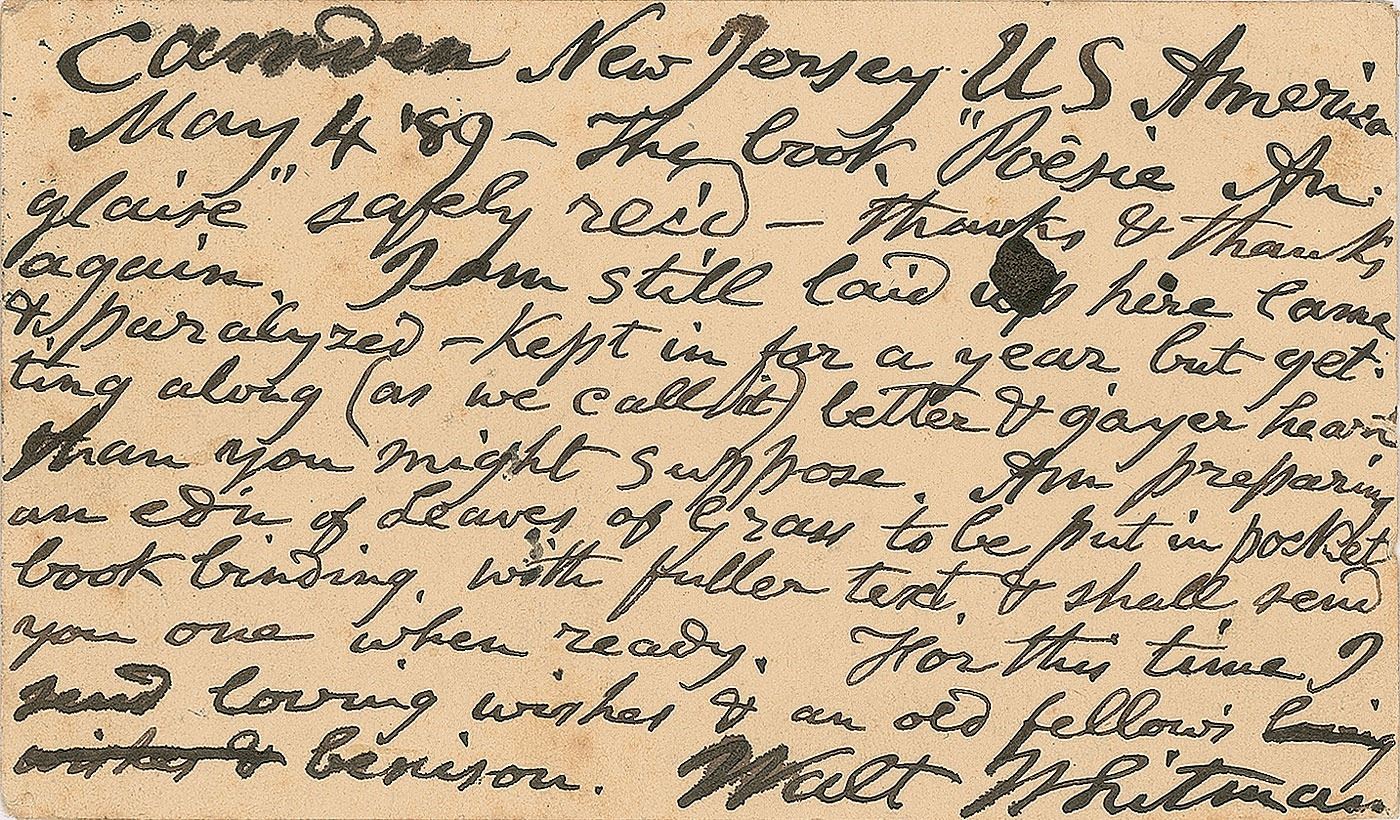 Camden New Jersey U S America
May 4 '89 – The book "Poêsie An-
glaise" safely rec'd – thanks & thanks
again. I am still laid up here lame
& paralyzed – kept in for a year but get-
ting along (as we call it) better & gayer heart
than you might suppose. Am preparing
an ed'n of Leaves of Grass to be put in pocket
book binding, with fuller text, & shall send
you one when ready. For this time I
send loving wishes & an old fellow's loving
wishes & benison. Walt Whitman